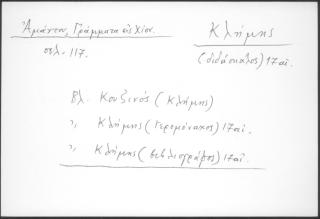 Ἀμάντου, Γράμματα εἰς Χίον.
σελ. 117.
Κλήμης
(διδάσκαλος) 17 αἰ.
Βλ. Κουζινός (Κλήμης)
〃 Κλήμης (ἱερομόναχος) 17 αἰ.
〃 Κλήμης (βιβλιογράφος) 17 αἰ.